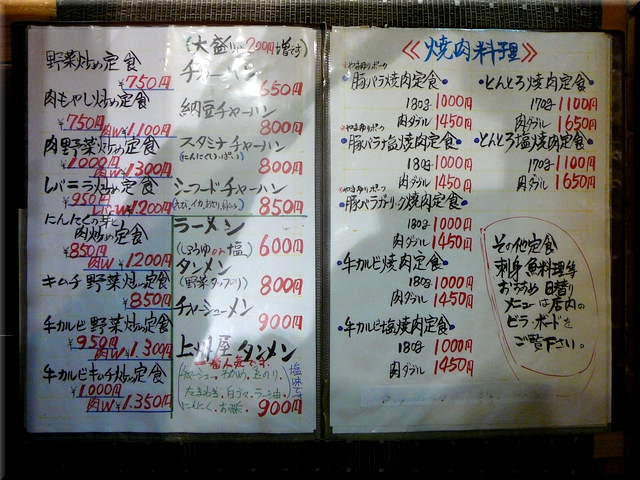 野菜炒め定食
¥750円
肉もやし炒め定食
¥750円
肉W¥1,100円
肉野菜炒め定食
¥1000円
肉W¥1300円
レバニラ炒め定食
¥950円
レバーW¥1200円
にんにくの芽と
肉炒め定食
¥850円
肉W¥1200円
キムチ野菜炒め定食
¥850円
牛カルビ野菜炒め定食
¥950円
肉W¥1.300円
牛カルビキムチ炒め定食
¥1000円
肉W¥1.350円
(大盛りは200円増です)
チャーハン
650円
納豆チャーハン
800円
スタミナチャーハン
(にんにくいっぱい)
800円
シーフードチャーハン
850円
ラーメン
(しょうゆor塩)
600円
タンメン
(野菜タップリ)
800円
チャーシューメン
900円
タンメン
一番人気です
塩味
たまねぎ、白ゴマ、ラー油、
にんにく、お酢、
900円
≪焼肉料理≫
やまゆりポーク
・豚バラ焼肉定食・
180g 1000円
肉ダブル 1450円
やまゆりポーク
・豚バラ塩焼肉定食・
180g 1000円
肉ダブル 1450円
やまゆりポーク
・豚バラガーリック焼肉定食・
180g 1000円
肉ダブル 1450円
・牛カルビ焼肉定食・
180g 1000円
肉ダブル 1450円
・牛カルビ塩焼肉定食・
180g 1000円
肉ダブル 1450円
・とんとろ焼肉定食・
170g 1100円
肉ダブル 1650円
・とんとろ塩焼肉定食・
170g 1100円
肉ダブル 1650円
その他定食
刺身 魚料理等
おすすめ 日替り
メニューは店内の
ビラ・ボードを
ご覧下さい。